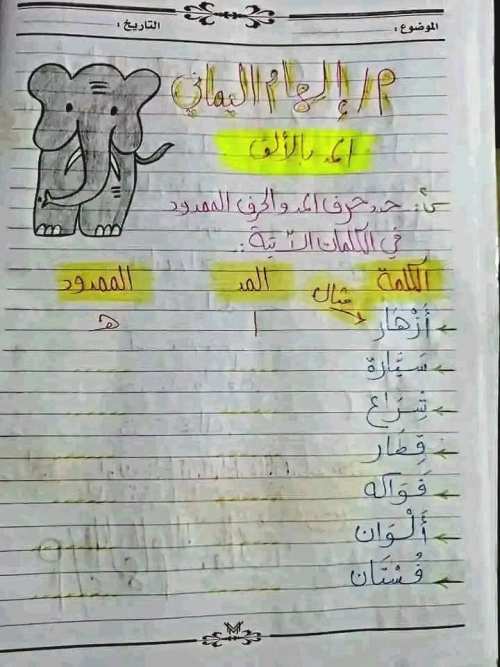 الموضوع : التاريخ :
م/ إلهام اليماني
المد بالألف
س١: حدد حرف المد والحرف الممدود
في الكلمات الآتية :
الكلمة المد الممدود
مثال
أَزْهَار ا هـ
سَيَّارة
شِرَاع
قِطَار
فَوَاكه
أَلْوَان
فُسْتَان